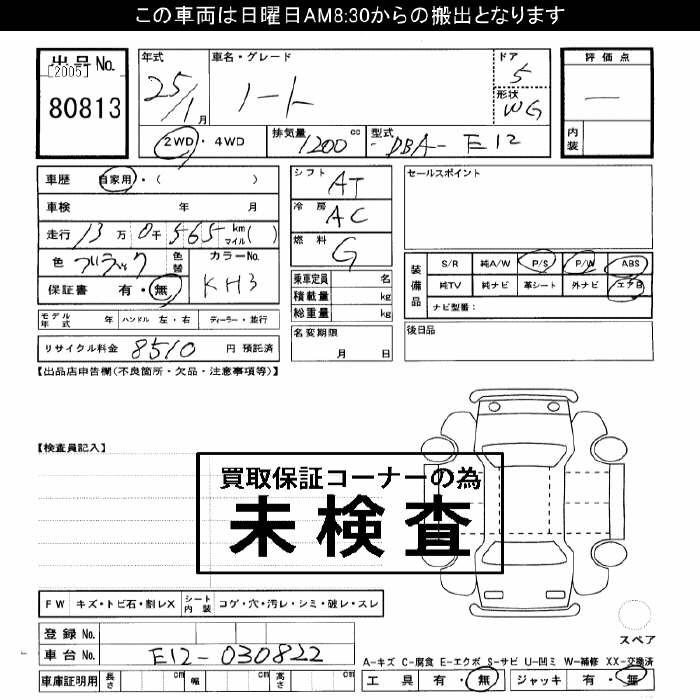 この車両は日曜日AM8:30からの搬出となります
出品No. [2005] 80813
年式 25/1月
車名・グレード ノート
ドア 5
形状 WG
2WD・4WD
排気量 1200cc
型式 -DBA- E12
評価点 —
内装
車歴 自家用・( )
車検 年 月
走行 13万0千565km マイル( )
色 ブラック 色替 カラーNo. KH3
保証書 有・無
シフト AT
冷房 AC
燃料 G
乗車定員 名
積載量 kg
総重量 kg
セールスポイント
装備品 S/R 純A/W P/S P/W ABS
純TV 純ナビ 革シート 外ナビ エアB
ナビ型番:
モデル年式 年 ハンドル 左・右 ディーラー・並行
名変期限 月 日
後日品
リサイクル料金 8510 円 預託済
【出品店申告欄(不良箇所・欠品・注意事項等)】
【検査員記入】
買取保証コーナーの為
未検査
FW キズ・トビ石・割レX シート内装 コゲ・穴・汚レ・シミ・破レ・スレ
登録No.
車台No. E12-030822
車庫証明用 長さ cm 幅 cm 高さ cm
スペア
A-キズ C-腐食 E-エクボ S-サビ U-凹ミ W-補修 XX-交換済
工具 有・無 ジャッキ 有・無